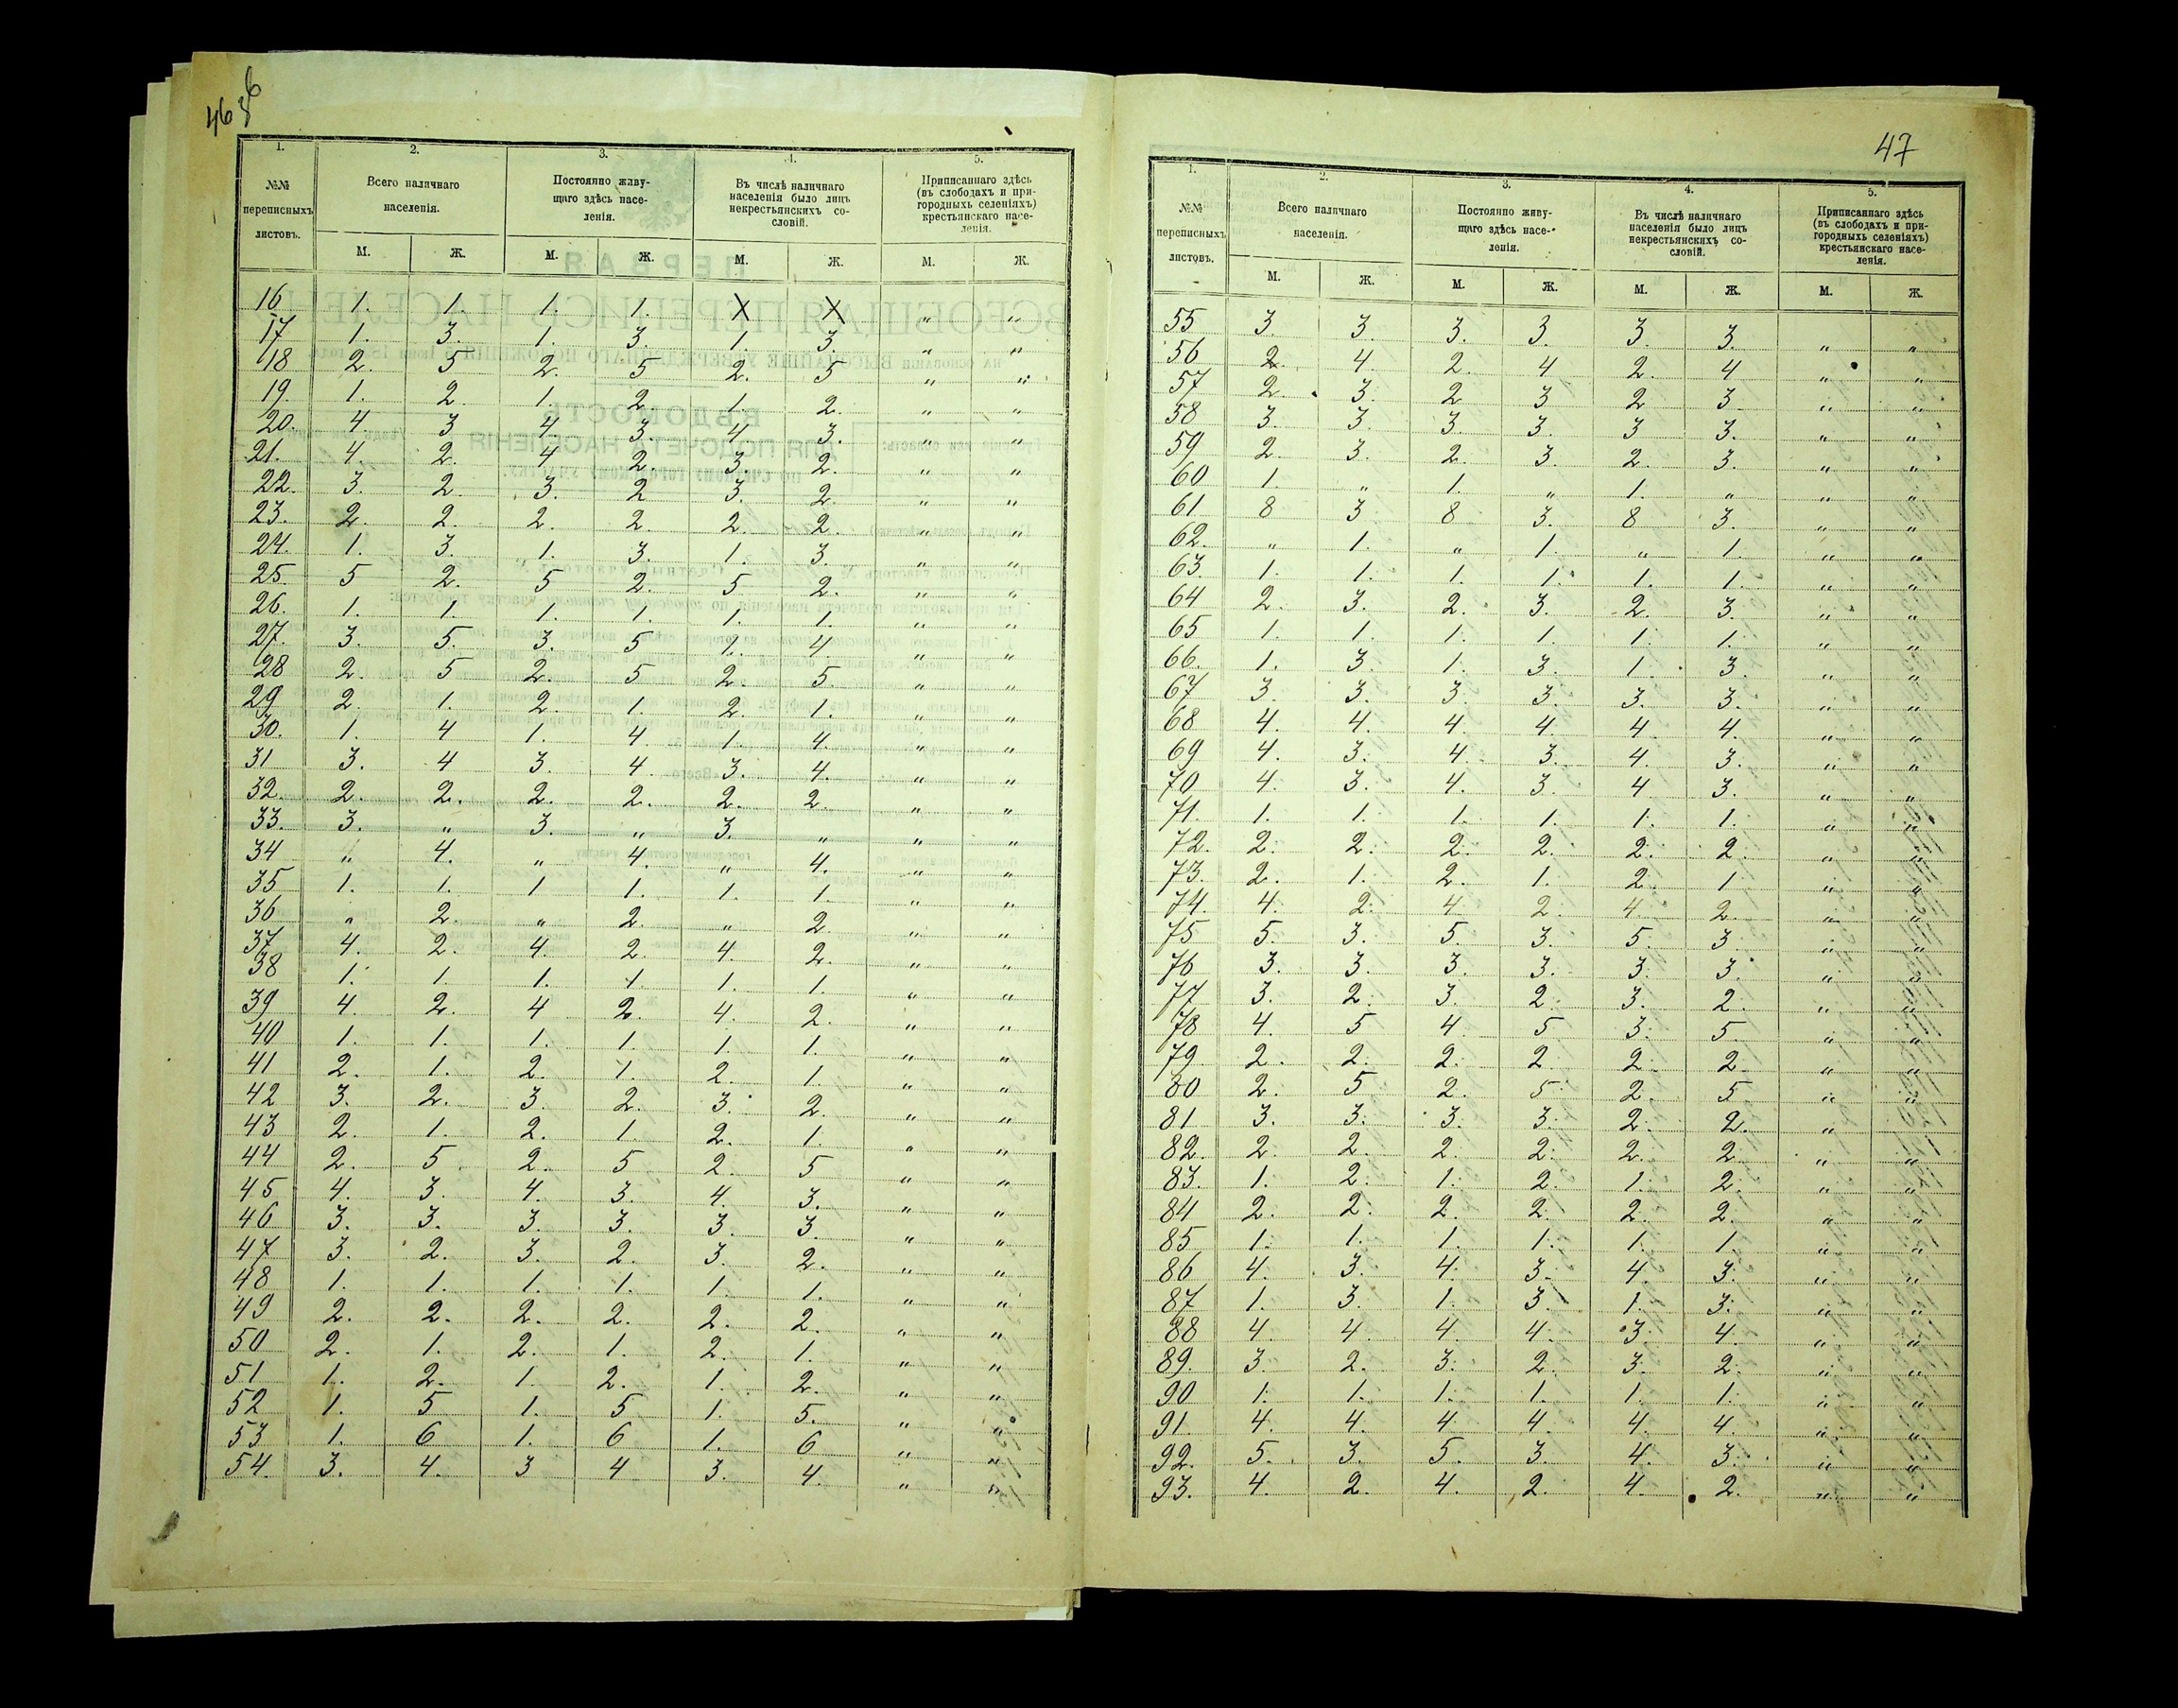 46 36
1. 2. 3. 4. 5.
№№ переписныхъ листовъ.
Всего наличнаго населенія.
Постоянно живущаго здѣсь населенія.
Въ числѣ наличнаго населенія было лицъ некрестьянскихъ сословій.
Приписаннаго здѣсь (въ слободахъ и пригородныхъ селеніяхъ) крестьянскаго населенія.
М. Ж. М. Ж. М. Ж. М. Ж.
16 1. 1. 1. 1. X X " "
17 1. 3. 1. 3. 1. 3 " "
18 2. 5 2. 5 2. 5 " "
19 1. 2. 1. 2 1. 2. " "
20. 4 3 4 3. 4 3. " "
21. 4. 2. 4 2. 3. 2. " "
22. 3. 2 3. 2 3. 2. " "
23. 2. 2. 2. 2. 2. 2. " "
24. 1. 3. 1. 3. 1. 3. " "
25 5 2. 5 2. 5 2. " "
26. 1. 1. 1. 1. 1. 1. " "
27. 3. 5. 3. 5 1. 4. " "
28 2. 5 2. 5 2. 5. " "
29 2. 1. 2. 1. 2. 1. " "
30. 1. 4 1. 4. 1. 4. " "
31 3. 4 3. 4. 3. 4. " "
32. 2. 2. 2. 2. 2. 2. " "
33. 3. " 3. " 3. " " "
34 " 4. " 4. " 4. " "
35 1. 1. 1 1. 1. 1. " "
36 " 2. " 2. " 2. " "
37 4. 2. 4. 2. 4. 2. " "
38 1. 1. 1. 1. 1. 1. " "
39 4. 2. 4 2. 4. 2. " "
40 1. 1. 1. 1. 1. 1. " "
41 2. 1. 2. 1. 2. 1. " "
42 3. 2. 3. 2. 3. 2. " "
43 2. 1. 2. 1. 2. 1. " "
44 2. 5 2. 5 2. 5 " "
45 4. 3. 4. 3. 4. 3. " "
46 3. 3. 3. 3. 3. 3. " "
47 3. 2. 3. 2. 3. 2. " "
48 1. 1. 1. 1. 1. 1. " "
49 2. 2. 2. 2. 2. 2. " "
50 2. 1. 2. 1. 2. 1. " "
51 1. 2. 1. 2. 1. 2. " "
52 1. 5 1. 5 1. 5. " "
53 1. 6 1. 6 1. 6 " "
54. 3. 4. 3 4 3. 4. " "
47
1. 2. 3. 4. 5.
№№ переписныхъ листовъ.
Всего наличнаго населенія.
Постоянно живущаго здѣсь населенія.
Въ числѣ наличнаго населенія было лицъ некрестьянскихъ сословій.
Приписаннаго здѣсь (въ слободахъ и пригородныхъ селеніяхъ) крестьянскаго населенія.
М. Ж. М. Ж. М. Ж. М. Ж.
55 3. 3. 3. 3. 3. 3. " "
56 2. 4. 2. 4 2. 4 " "
57 2 3. 2 3 2 3 " "
58 3. 3. 3. 3. 3 3. " "
59 2. 3. 2. 3. 2. 3. " "
60 1. " 1. " 1. " " "
61 8 3 8 3. 8 3. " "
62. " 1. " 1. " 1. " "
63. 1. 1. 1. 1. 1. 1. " "
64 2. 3. 2. 3. 2. 3. " "
65 1. 1. 1. 1. 1. 1. " "
66. 1. 3. 1. 3. 1. 3. " "
67 3. 3. 3. 3. 3. 3. " "
68 4. 4. 4. 4. 4. 4. " "
69 4. 3. 4. 3. 4. 3. " "
70 4. 3. 4. 3. 4 3. " "
71. 1. 1. 1. 1. 1. 1. " "
72. 2. 2. 2. 2. 2. 2. " "
73. 2. 1. 2. 1. 2. 1 " "
74. 4. 2. 4 2. 4. 2. " "
75 5. 3. 5. 3. 5. 3. " "
76 3. 3. 3. 3. 3. 3. " "
77 3. 2. 3. 2. 3. 2. " "
78 4. 5 4. 5 3. 5. " "
79. 2. 2. 2. 2. 2. 2. " "
80 2. 5 2. 5. 2. 5 " "
81 3. 3. 3. 3. 2. 2. " "
82. 2. 2. 2. 2. 2. 2. " "
83. 1. 2. 1. 2. 1. 2. " "
84 2. 2. 2. 2. 2. 2. " "
85 1. 1. 1. 1. 1. 1. " "
86 4. 3. 4. 3. 4. 3. " "
87 1. 3. 1. 3. 1. 3. " "
88 4. 4. 4. 4. 3. 4. " "
89. 3. 2. 3. 2. 3. 2. " "
90 1. 1. 1. 1. 1. 1. " "
91. 4. 4. 4. 4. 4. 4. " "
92. 5. 3. 5. 3. 4. 3. " "
93. 4. 2. 4. 2. 4. 2. " "